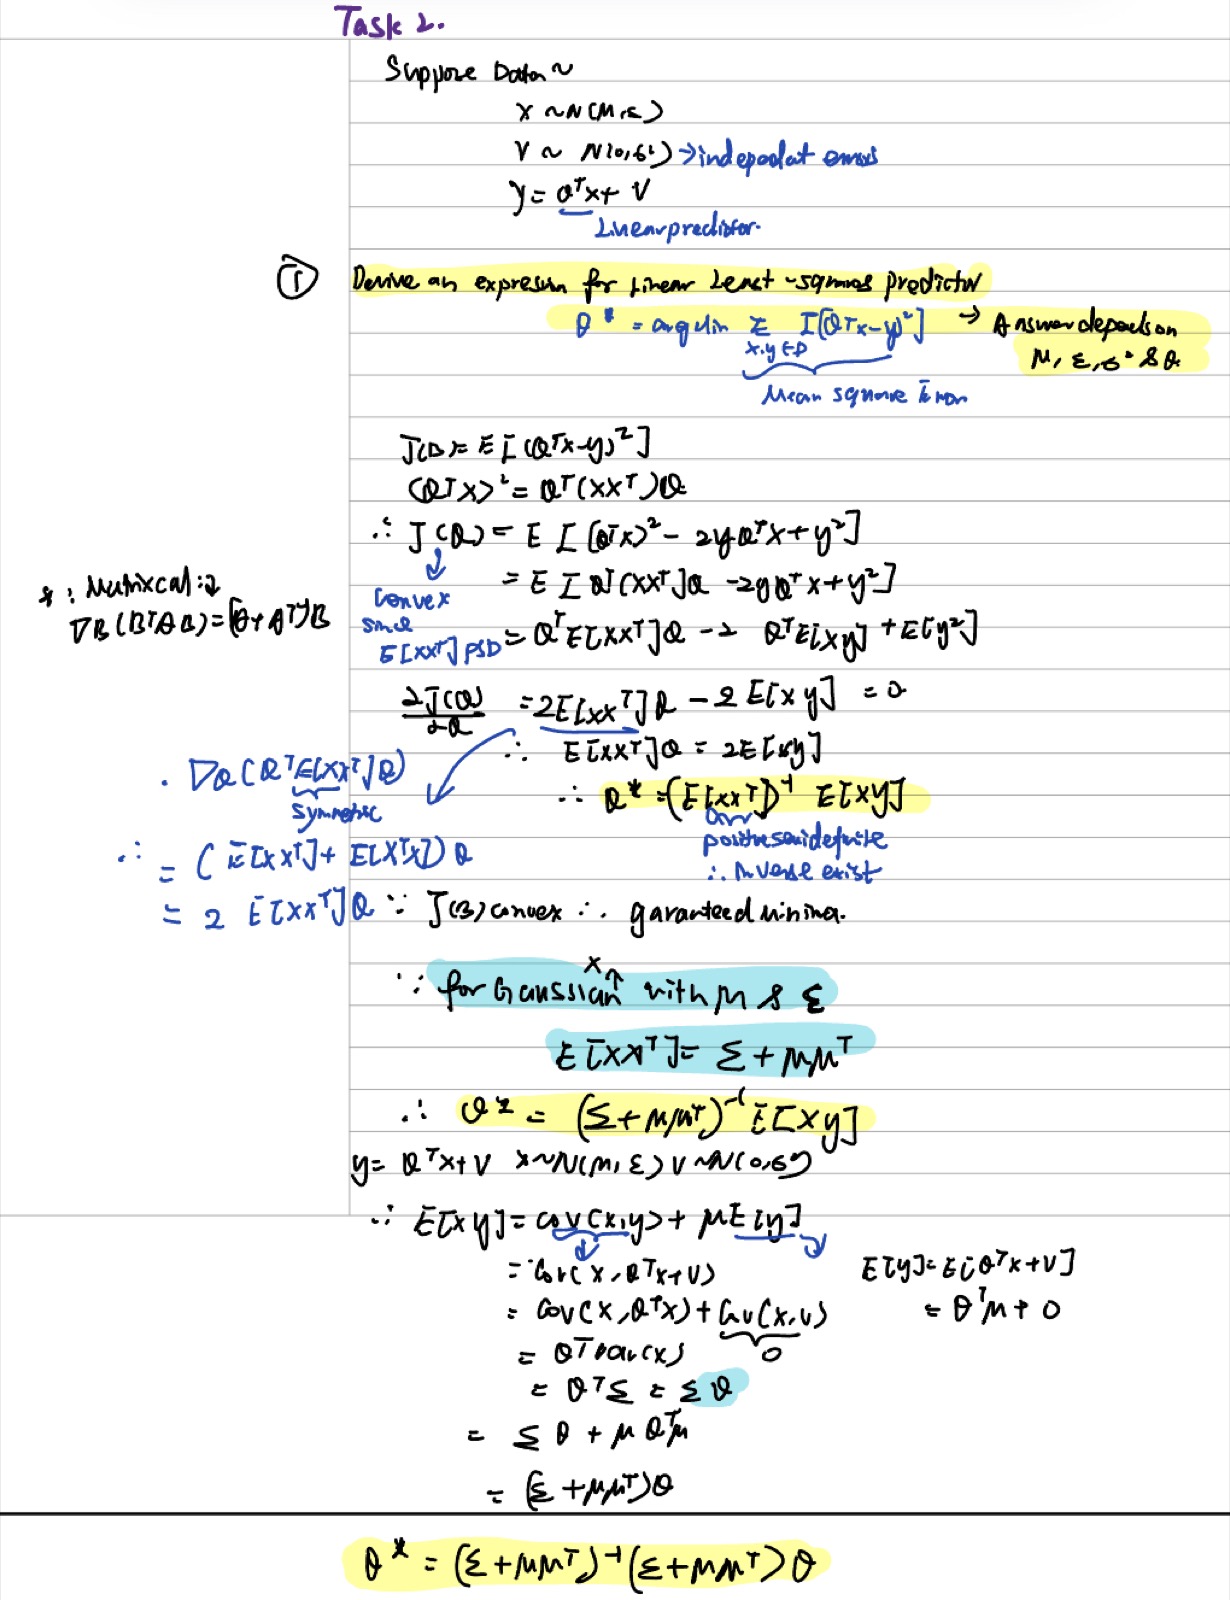 Task 2.
Suppose Data ~
X ~ N(μ, Σ)
V ~ N(0, σ²) → independat errors
y = θᵀx + V
Linear predictor.
① Derive an expression for Linear Least-squares predictor
θ* = argmin Σ E[(θᵀx - y)²] → Answer depends on
x,y∈D
μ, Σ, σ² & θ
Mean square Error
J(θ) = E[(θᵀx-y)²]
(θᵀx)² = θᵀ(xxᵀ)θ
∴ J(θ) = E[(θᵀx)² - 2yθᵀx + y²]
= E[θᵀ(xxᵀ)θ - 2yθᵀx + y²]
Convex
since
E[xxᵀ] PSD
= θᵀE[xxᵀ]θ - 2 θᵀE[xy] + E[y²]
* : Matrix cal :2
∇B(BᵀAB) = (A + Aᵀ)B
∂J(θ)/∂θ = 2E[xxᵀ]θ - 2E[xy] = 0
∴ E[xxᵀ]θ = 2E[xy]
∴ θ* = (E[xxᵀ])⁻¹ E[xy]
positive semidefinite
∴ inverse exist
. ∇θ(θᵀE[xxᵀ]θ)
symmetric
∴ = (E[xxᵀ] + E[xᵀx])θ
= 2 E[xxᵀ]θ
∵ J(B) convex ∴ garanteed minima.
∵ for Gaussian X with μ & Σ
E[xxᵀ] = Σ + μμᵀ
∴ θ* = (Σ + μμᵀ)⁻¹ E[xy]
y = θᵀx + V x~N(μ, Σ) V~N(0, σ²)
∴ E[xy] = cov(x,y) + μE[y]
= Cov(x, θᵀx+V)
E[y] = E[θᵀx+V]
= Cov(x, θᵀx) + Cov(x,v)
= θᵀμ + 0
0
= θᵀvar(x)
= θᵀΣ = Σθ
= Σθ + μθᵀμ
= (Σ + μμᵀ)θ
θ* = (Σ + μμᵀ)⁻¹(Σ + μμᵀ)θ